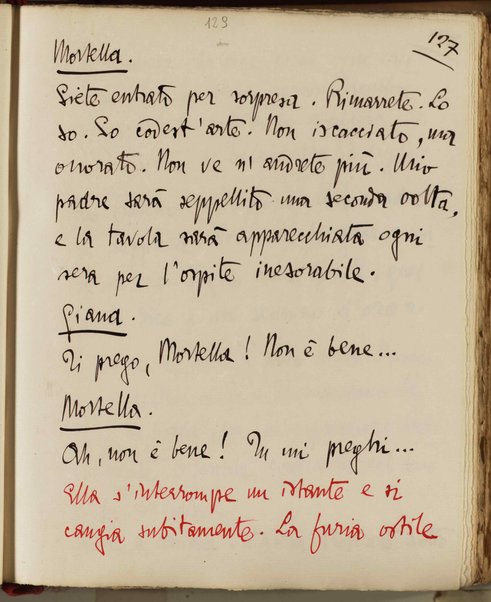 123
127
Mortella.
Siete entrato per sorpresa. Rimarrete. Lo
so. So codest'arte. Non iscacciato, ma
onorato. Non ve n'andrete più. Mio
padre sarà seppellito una seconda volta,
e la tavola sarà apparecchiata ogni
sera per l'ospite inesorabile.
Giana.
Ti prego, Mortella! Non è bene...
Mortella.
Ah, non è bene! Tu mi preghi...
Ella s'interrompe un istante e si
cangia subitamente. La furia ostile